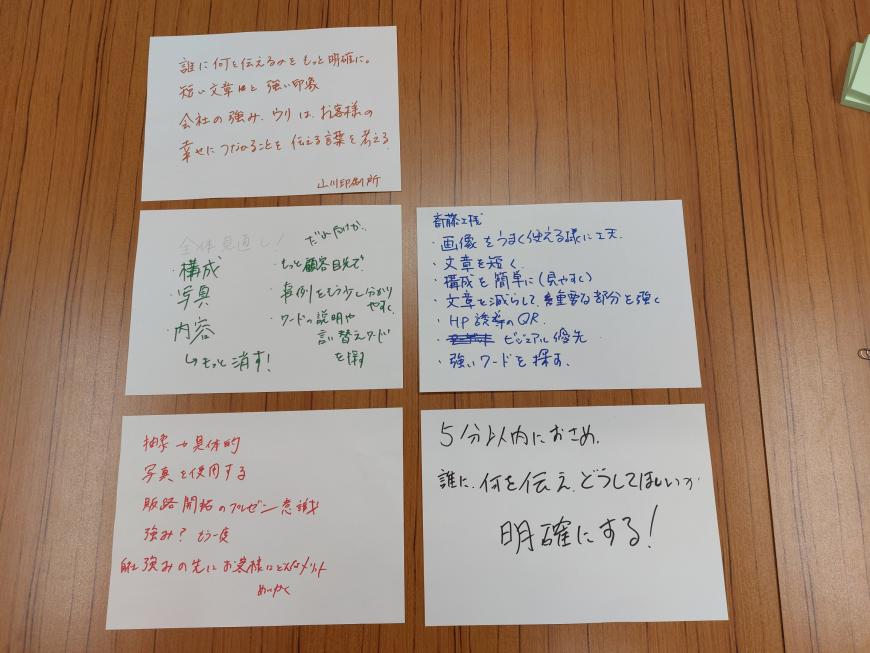 誰に何を伝えるのをもっと明確に。
短い文章ほど強い印象
会社の強み、ウリは、お客様の
幸せにつながることを伝える言葉を考える
山川印刷所
全体見直し!
・構成
・写真
・内容
↳もっと消す!
だれ向けか、
・もっと顧客目先で?
・事例をもう少し分かり
やすく、
・ワードの説明や
言い替えワード
を探す
斎藤工成
・画像をうまく使える様に工夫
・文章を短く
・構成を簡単に(見やすく)
・文章を減らして重要な部分を強く
・HP誘導のQR
・ビジュアル優先
・強いワードを探す、
抽象→具体的
写真を使用する
販路開拓のプレゼン意識
強み? もう一度
自社強みの先にお客様にどんなメリット
めいかく
5分以内におさめ、
誰に、何を伝え、どうしてほしいか
明確にする!